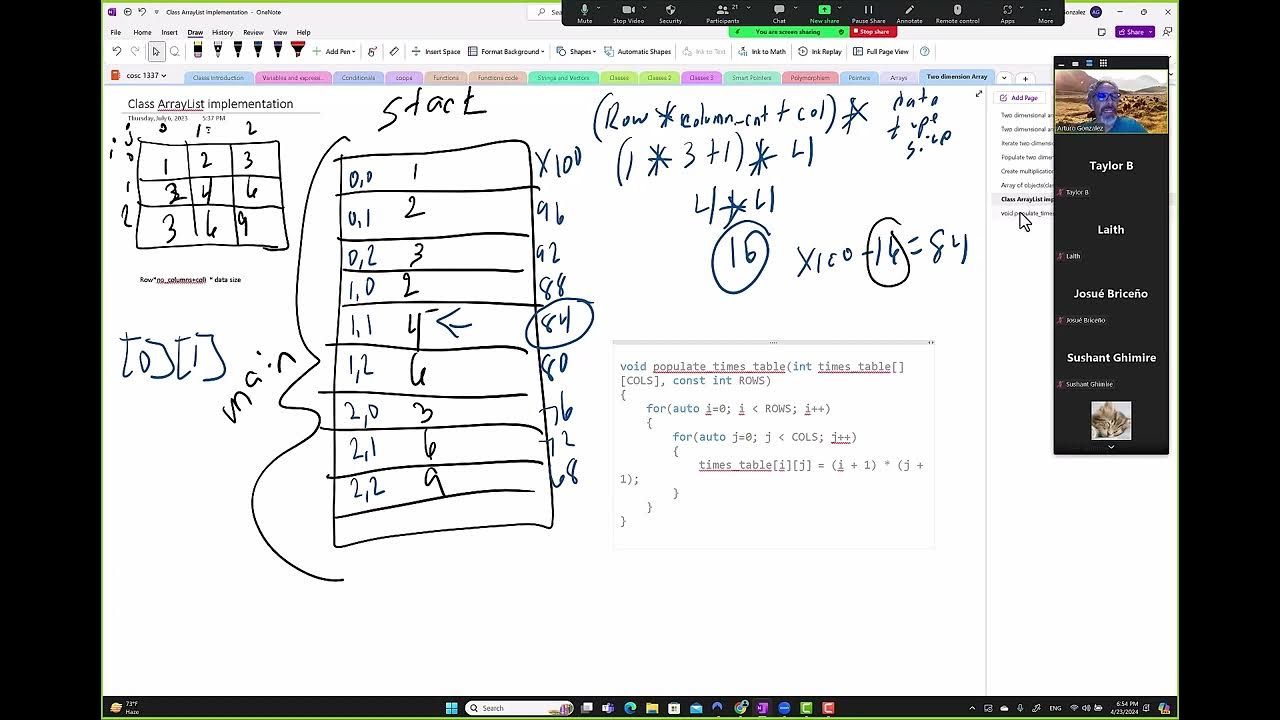 Class ArrayList implementation - OneNote
Mute
Stop Video
Security
Participants
21
Chat
New share
Pause Share
Annotate
Remote control
Apps
More
Gonzalez
AG
You are screen sharing
Stop share
File
Home
Insert
Draw
History
Review
View
Help
Share
Add Pen
Insert Space
Format Background
Shapes
Automatic Shapes
Ink to Text
Ink to Math
Ink Replay
Full Page View
cosc 1337
Classs Introduction
Variables and expressi...
Conditionals
loops
Functions
Functions code
Strings and Vectors
Classes
Classes 2
Classes 3
Smart Pointers
Polymorphism
Pointers
Arrays
Two dimension Array
Class ArrayList implementation
Thursday, July 6, 2023 5:37 PM
j 0 1 2
i
0 1 2 3
1 2 4 6
2 3 6 9
Row*no_columns+col) * data size
[0][1]
main
stack
0,0 1 X100
0,1 2 96
0,2 3 92
1,0 2 88
1,1 4 84
1,2 6 80
2,0 3 76
2,1 6 72
2,2 9 68
(Row * column_cnt + col) * data type size
(1 * 3 + 1) * 4
4 * 4
16
X100 - 16 = 84
void populate_times_table(int times_table[]
[COLS], const int ROWS)
{
for(auto i=0; i < ROWS; i++)
{
for(auto j=0; j < COLS; j++)
{
times_table[i][j] = (i + 1) * (j +
1);
}
}
}
Add Page
Two dimensional an
Two dimensional an
Iterate two dimensio
Populate two dimen
Create multiplication
Array of objects(clas
Class ArrayList imp
void populate_times
Arturo Gonzalez
Taylor B
Taylor B
Laith
Laith
Josué Briceño
Josué Briceño
Sushant Ghimire
Sushant Ghimire
73°F
Haze
Search
ENG
6:54 PM
4/23/2024